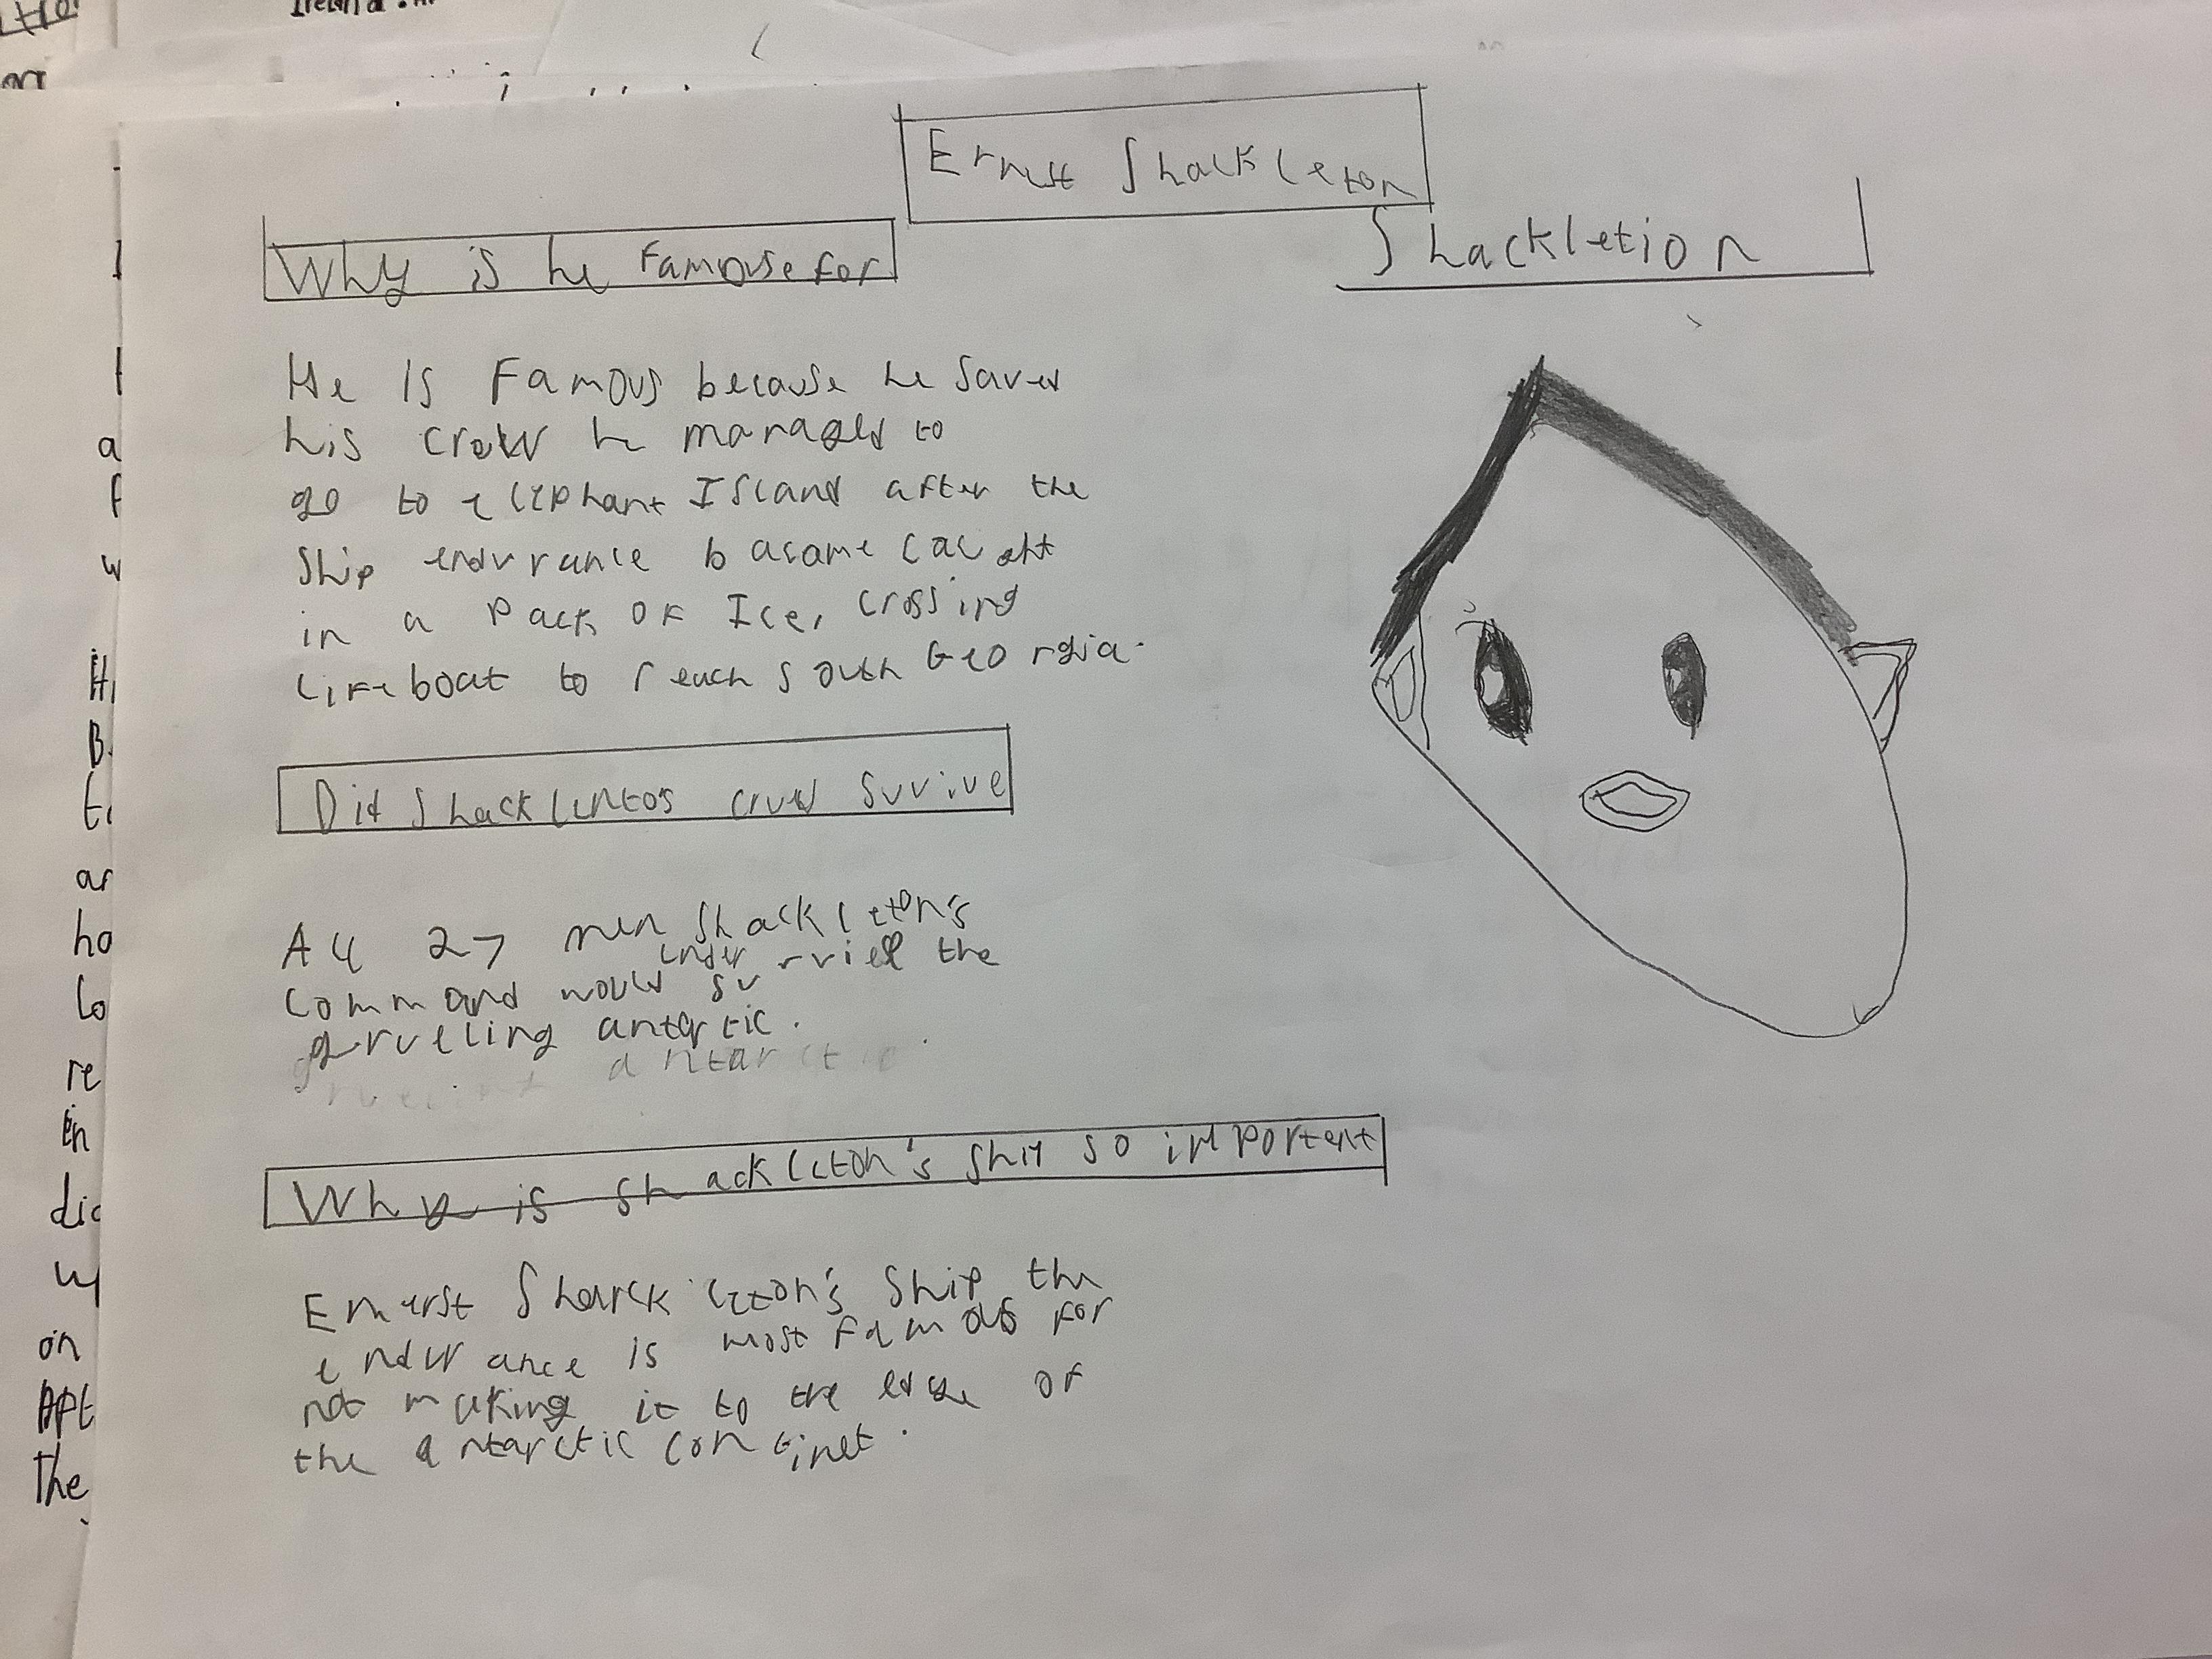 Ernest Shackleton
Why is he Famouse for
Shackletion
He Is Famous because he saved
his crew he managed to
go to elephant Island after the
Ship endurance bacame caught
in a pack of Ice, crossing
lifeboat to reach South Georgia.
Did Shacklentos crew survive
All 27 men Shackleton's
under
command would survied the
grueling antartic.
antarctic
Why is Shackleton's ship so importent
endurance is most famous for
not making it to the edge of
the antarctic continet.
Ireland.
a
f
w
ho
Lo
re
in
dic
up
on
The